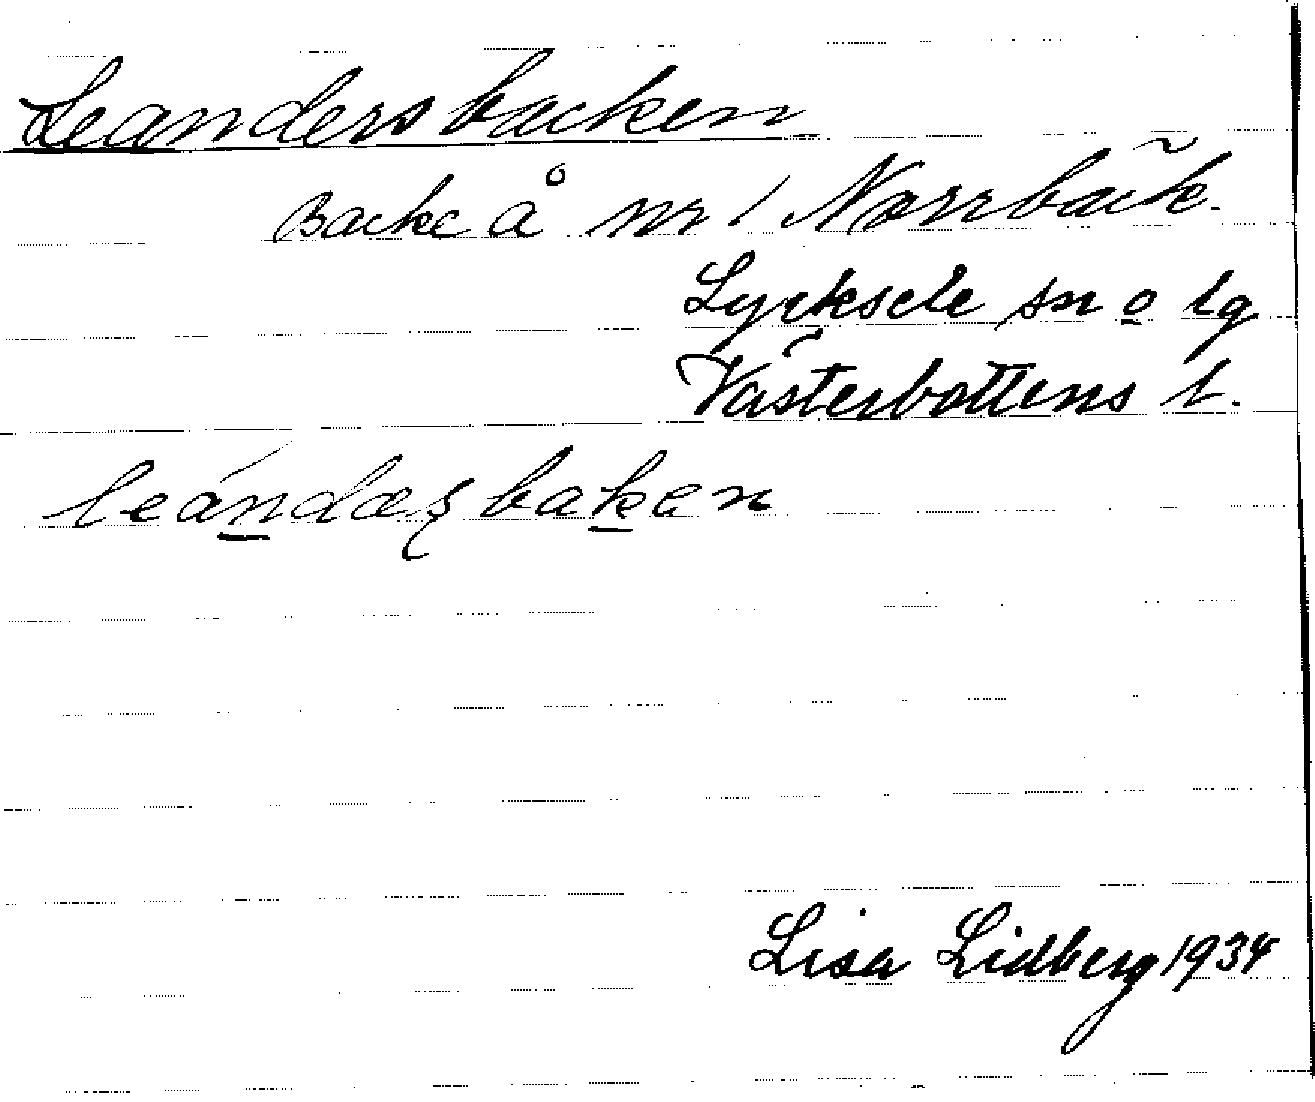 Leandersbacken
Backe å nr 1 Norrbäck.
Lycksele sn o lg
Västerbottens l.
leándæʂbaken
Lisa Lidberg 1934